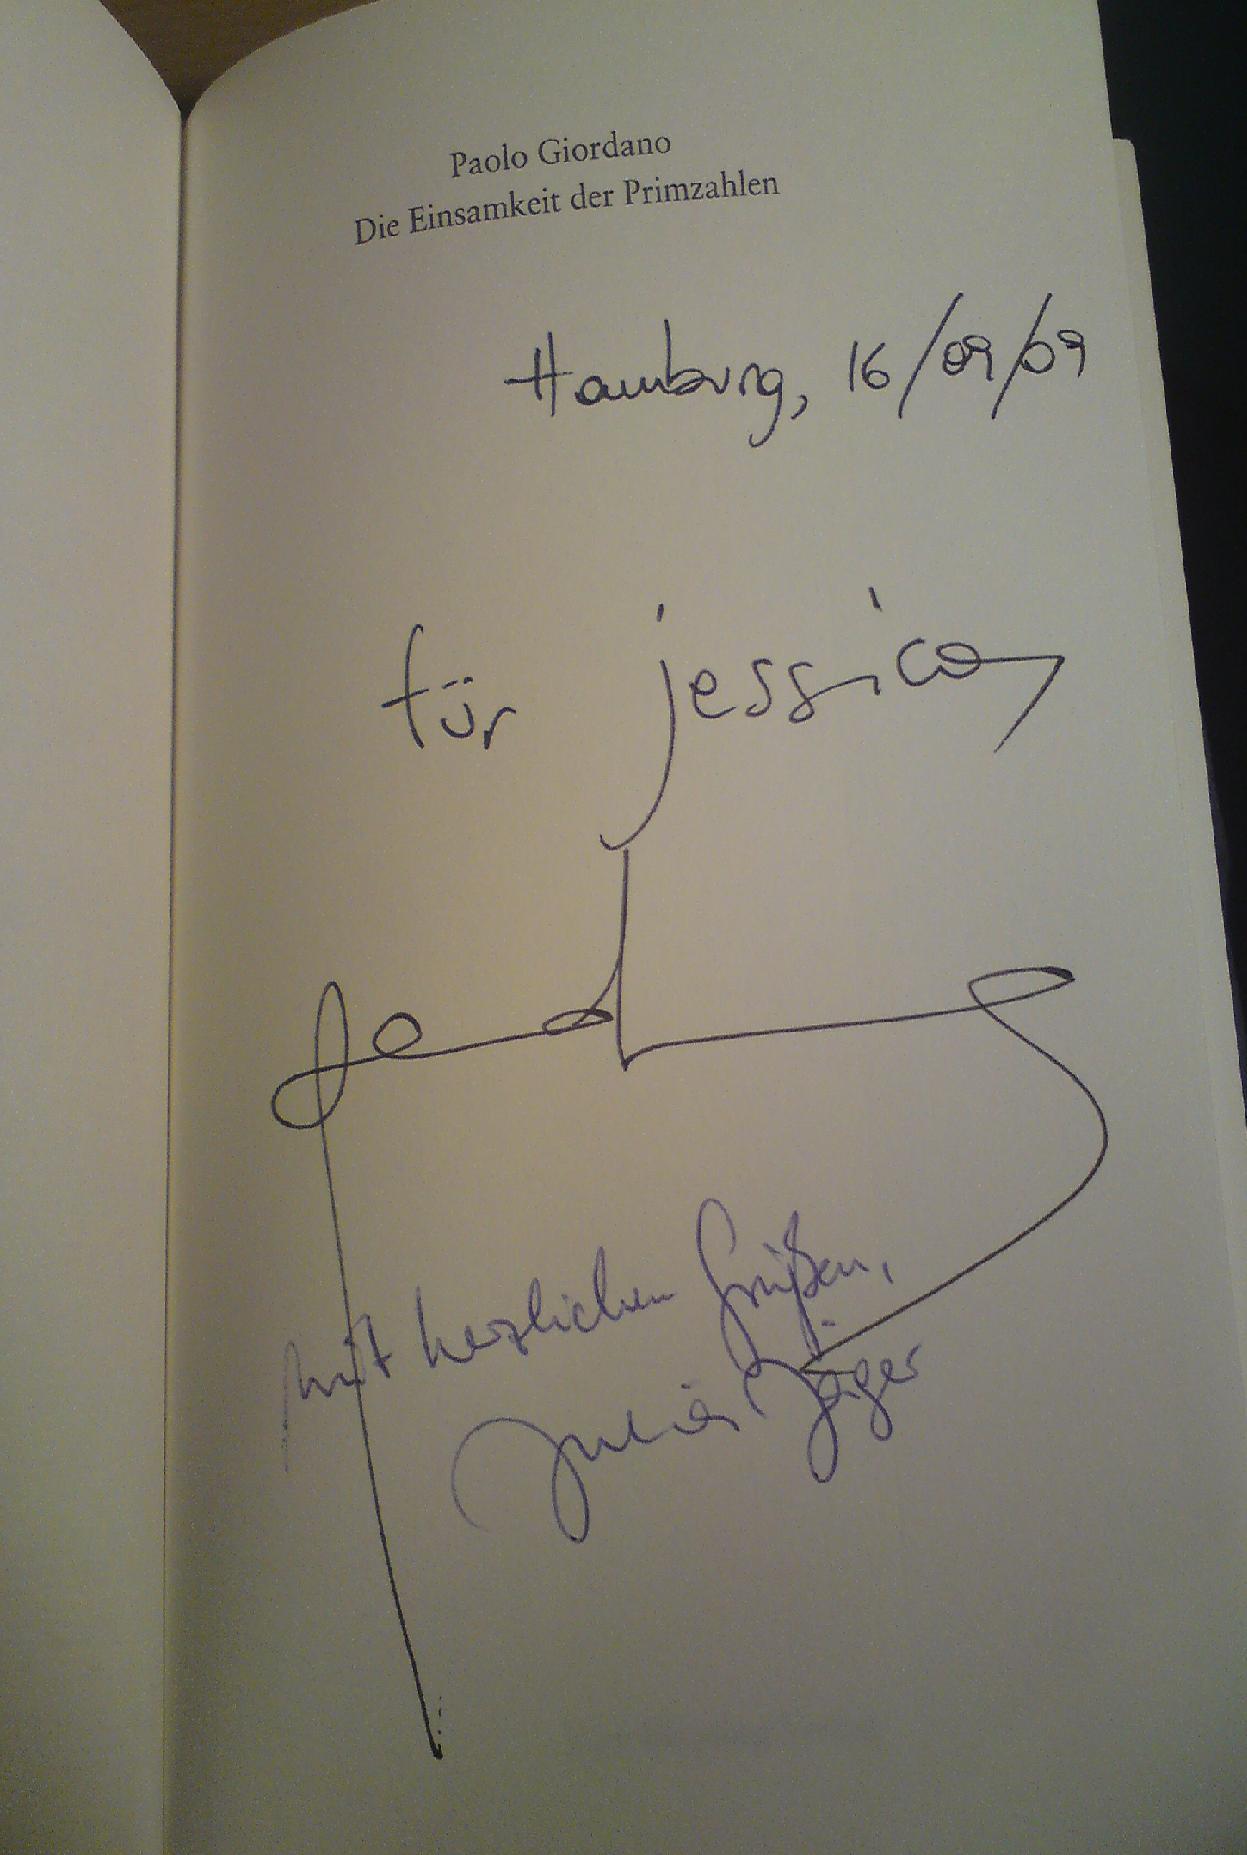 Paolo Giordano
Die Einsamkeit der Primzahlen
Hamburg, 16/09/09
für jessica
mit herzlichen Grüßen,
Julia Jäger